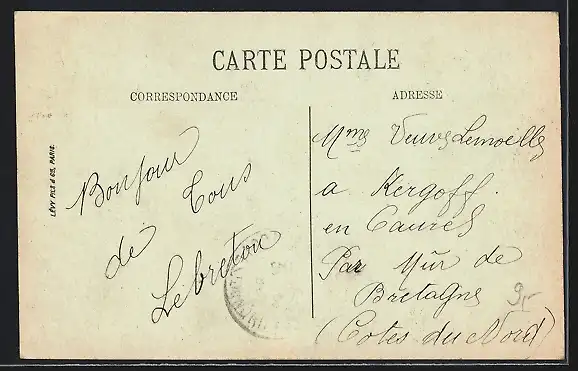 CARTE POSTALE
CORRESPONDANCE
ADRESSE
LÉVY FILS & Cie, PARIS.
Bonjour
de Tous
Lebreton
Mme Veuve Lemoelle
a Kergoff
en Caurel
Par Mûr de
Bretagne
(Cotes du Nord)
9,-